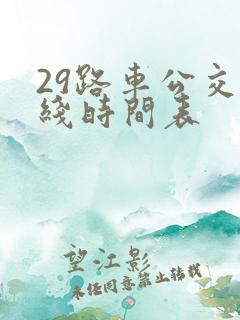 29路车公交
綫時間表
望江影
未经同意禁止转载